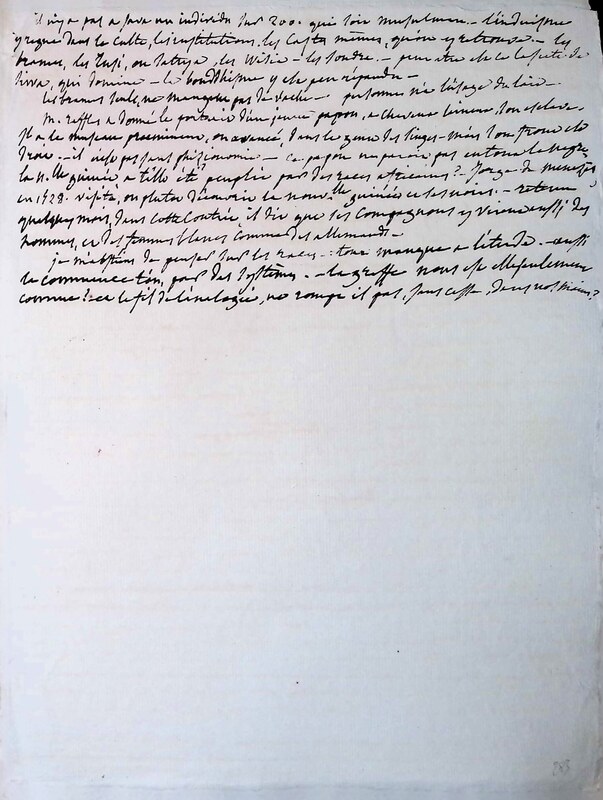 il n'y a pas a Java un individu sur 200. qui soit musulman. - l'indouisme
y regne dans le culte, les institutions, les castes mêmes, qu'on y retrouve. - les
brames, les ou satriya, les Wisia - les soudra. - peut etre est ce la secte de
Siva, qui domine - le boudhisme y est peu répandu -
les brames seuls, ne mangent pas de vache - personne n'a l'usage du lait. -
M. Raffles a donné le portrait d'un jeune papou, a cheveux laineux, son esclave.
Il a le museau proeminent, ou avancé, dans le genre des singes - mais son front est
droit. - il n'est pas sans phizionomie - ce papou ne parait pas en tout le negre
la n.lle guinée a t'elle été peuplée par des races africaines? - Jorge de menezes
en 1528. visita, ou plutot découvrit la nouv.lle guinée et ses noirs. - retenu
quelques mois, dans cette contrée il dit que ses compagnons y virent aussi des
hommes, et des femmes blancs comme des allemands. -
je m'abstiens de penser sur les races. - tout manque a l'étude. - aussi
la commence t'on, par des systêmes. - la greffe nous est elle seulement
connue? et le fil de l'analogie, ne rompt il pas, sans cesse, dans nos mains?